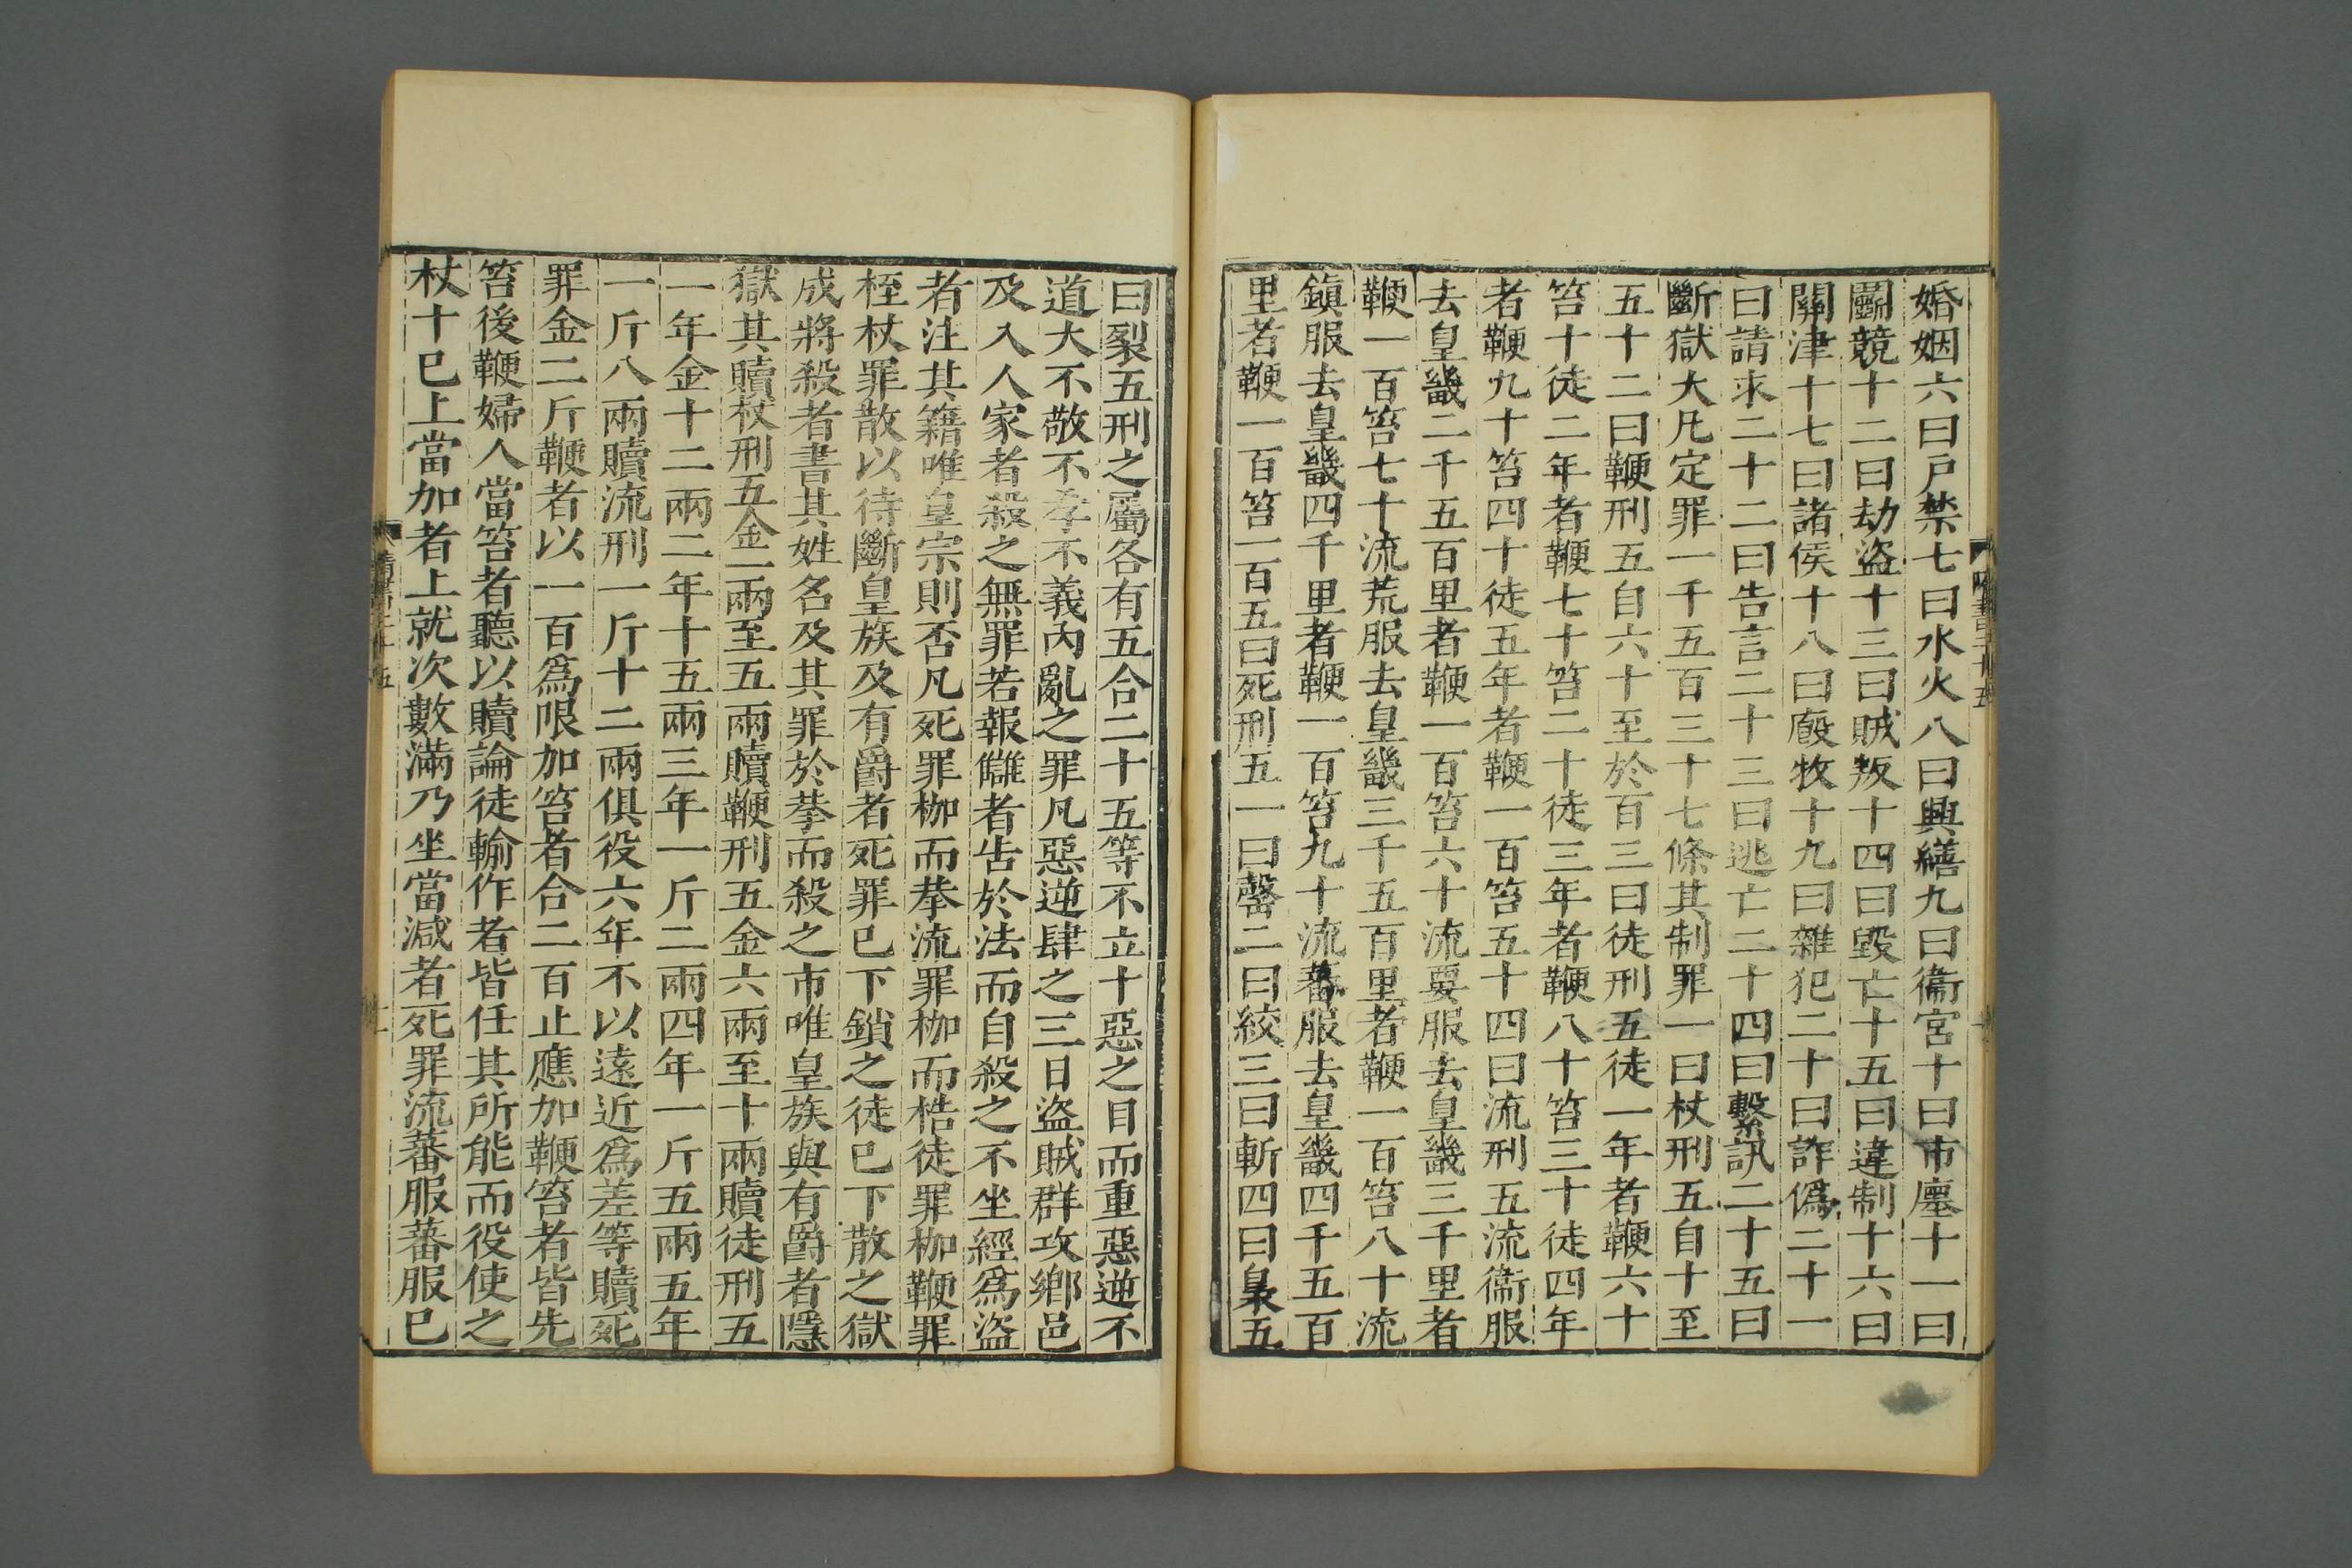 婚姻六曰戶禁七曰水火八曰興繕九曰衞宮十曰市廛十一曰
鬭競十二曰劫盜十三曰賊叛十四曰毀亡十五曰違制十六曰
關津十七曰諸侯十八曰廏牧十九曰雜犯二十曰詐僞二十一
曰請求二十二曰告言二十三曰逃亡二十四曰繫訊二十五曰
斷獄大凡定罪一千五百三十七條其制罪一曰杖刑五自十至
五十二曰鞭刑五自六十至於百三曰徒刑五徒一年者鞭六十
笞十徒二年者鞭七十笞二十徒三年者鞭八十笞三十徒四年
者鞭九十笞四十徒五年者鞭一百笞五十四曰流刑五流衞服
去皇畿二千五百里者鞭一百笞六十流要服去皇畿三千里者
鞭一百笞七十流荒服去皇畿三千五百里者鞭一百笞八十流
鎮服去皇畿四千里者鞭一百笞九十流蕃服去皇畿四千五百
里者鞭一百笞一百五曰死刑五一曰罄二曰絞三曰斬四曰梟五
曰裂五刑之屬各有五合二十五等不立十惡之目而重惡逆不
道大不敬不孝不義內亂之罪凡惡逆肆之三日盜賊群攻鄉邑
及入人家者殺之無罪若報讎者告於法而自殺之不坐經爲盜
者注其籍唯皇宗則否凡死罪枷而拲流罪枷而梏徒罪枷鞭罪
桎杖罪散以待斷皇族及有爵者死罪已下鎖之徒已下散之獄
成將殺者書其姓名及其罪於拲而殺之市唯皇族與有爵者隱
獄其贖杖刑五金一兩至五兩贖鞭刑五金六兩至十兩贖徒刑五
一年金十二兩二年十五兩三年一斤二兩四年一斤五兩五年
一斤八兩贖流刑一斤十二兩俱役六年不以遠近爲差等贖死
罪金二斤鞭者以一百爲限加笞者合二百止應加鞭笞者皆先
笞後鞭婦人當笞者聽以贖論徒輸作者皆任其所能而役使之
杖十已上當加者上就次數滿乃坐當減者死罪流蕃服蕃服已